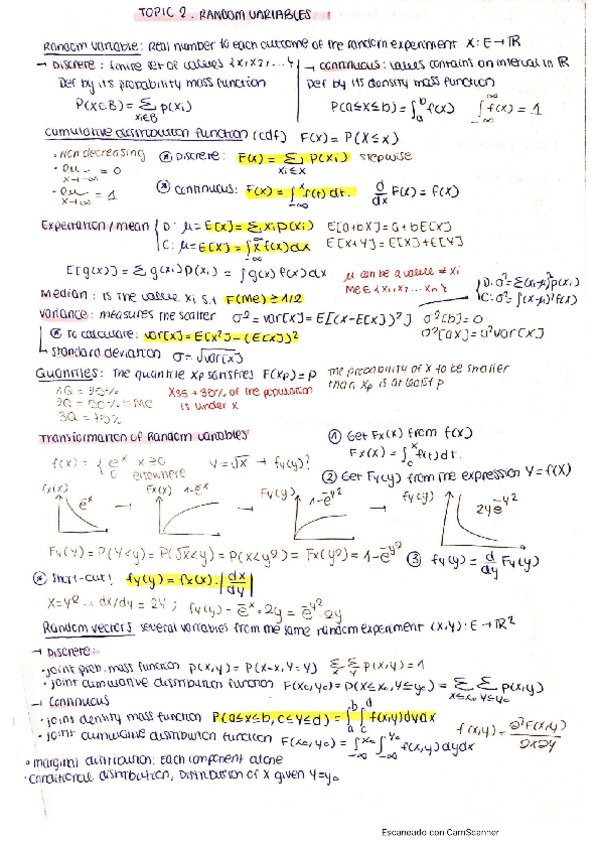 TOPIC 2. RANDOM VARIABLES
Random variable: Real number to each outcome of the random experiment X: E→ℝ
→ Discrete: finite set of values {x₁,x₂,...} → continuous: values contains an interval in ℝ
Def by its probability mass function Def by its density mass function
P(X∈B) = Σ_{xi∈B} p(xi) P(a≤x≤b) = ∫_a^b f(x) ∫_{-∞}^{∞} f(x) = 1
Cumulative distribution function (cdf) F(x) = P(X≤x)
· Non decreasing Discrete: F(x) = Σ_{xi≤x} P(xi) stepwise
x→-∞ = 0
x→∞ = 1 continuous: F(x) = ∫_{-∞}^x f(t)dt. d/dx F(x) = f(x)
Expectation/mean { D: μ=E[X]=Σ xi p(xi) E[a+bX]=a+bE[X]
C: μ=E[X]=∫_{-∞}^{∞} x f(x)dx E[X+Y]=E[X]+E[Y]
E[g(x)] = Σ g(xi)p(xi) = ∫g(x)f(x)dx μ can be a value ≠ xi
ME∈{x₁,x₂,...xn}
Median: is the value xi s.t F(Me) ≥ 1/2 { D: σ²=Σ(xi-μ)²p(xi)
C: σ²=∫(x-μ)²f(x)
Variance: measures the scatter σ² = Var[X] = E[(X-E[X])²] σ²[b]=0
to calculate: Var[X] = E[X²]-(E[X])² σ²[aX]=a²Var[X]
↳ Standard deviation σ=√Var[X]
Quantiles: The quantile Xp satisfies F(Xp)=p The probability of X to be smaller
than Xp is at least p
X35 → 30% of the population
is under X
3Q = 75%
Transformation of Random variables ① Get Fx(x) from f(x)
Fx(x) = ∫_c^x f(t)dt.
f(x) = { e^-x x≥0 Y=√X → fy(y)?
0 elsewhere
② Get Fy(y) from the expression Y=f(X)
fx(x) Fx(x) 1-e^-x Fy(y) 1-e^-y² fy(y)
e^-x → → → 2ye^-y²
Fy(y) = P(Y<y) = P(√X<y) = P(X<y²) = Fx(y²) = 1-e^-y² ③ fy(y) = d/dy Fy(y)
Short-cut! fy(y) = fx(x)·|dx/dy|
X=Y² ... dx/dy = 2y ; fy(y) = e^-x·2y = e^-y²·2y
Random vectors several variables from the same random experiment (x,y): E→ℝ²
→ Discrete:
· joint prob. mass function p(x,y) = P(X=x, Y=y) Σ_x Σ_y p(x,y) = 1
· joint cumulative distribution function F(x₀,y₀) = P(X≤x₀,Y≤y₀) = Σ_{x≤x₀} Σ_{y≤y₀} p(x,y)
→ Continuous
· joint density mass function P(a≤x≤b, c≤y≤d) = ∫_a^b ∫_c^d f(x,y)dydx
f(x,y) = ∂²F(x,y)/∂x∂y
· joint cumulative distribution function F(x₀,y₀) = ∫_{-∞}^{x₀} ∫_{-∞}^{y₀} f(x,y)dydx
· marginal distribution: Each component alone
· Conditional distribution, Distribution of X given Y=y₀
Escaneado con CamScanner